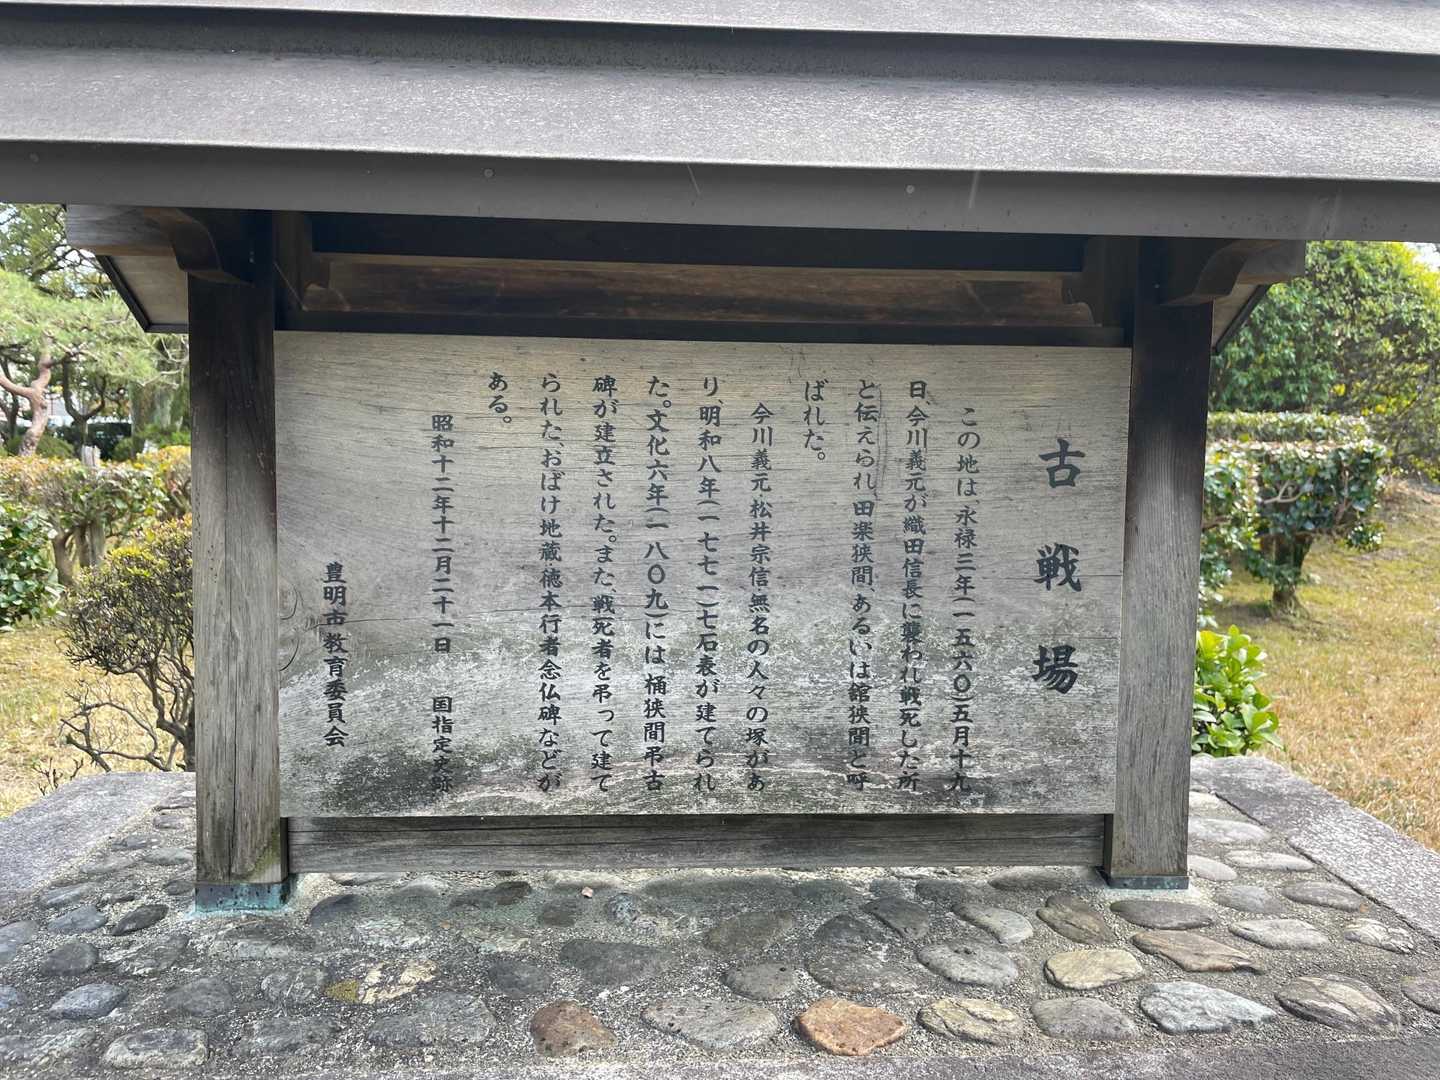 古戦場
この地は、永禄三年(一五六〇)五月十九
日、今川義元が織田信長に襲われ戦死した所
と伝えられ、田楽狭間、あるいは舘狭間と呼
ばれた。
今川義元・松井宗信・無名の人々の塚があ
り、明和八年(一七七一)七石表が建てられ
た。文化六年(一八〇九)には桶狭間弔古
碑が建立された。また、戦死者を弔って建て
られた、おばけ地蔵・徳本行者念仏碑などが
ある。
昭和十二年十二月二十一日 国指定史跡
豊明市教育委員会